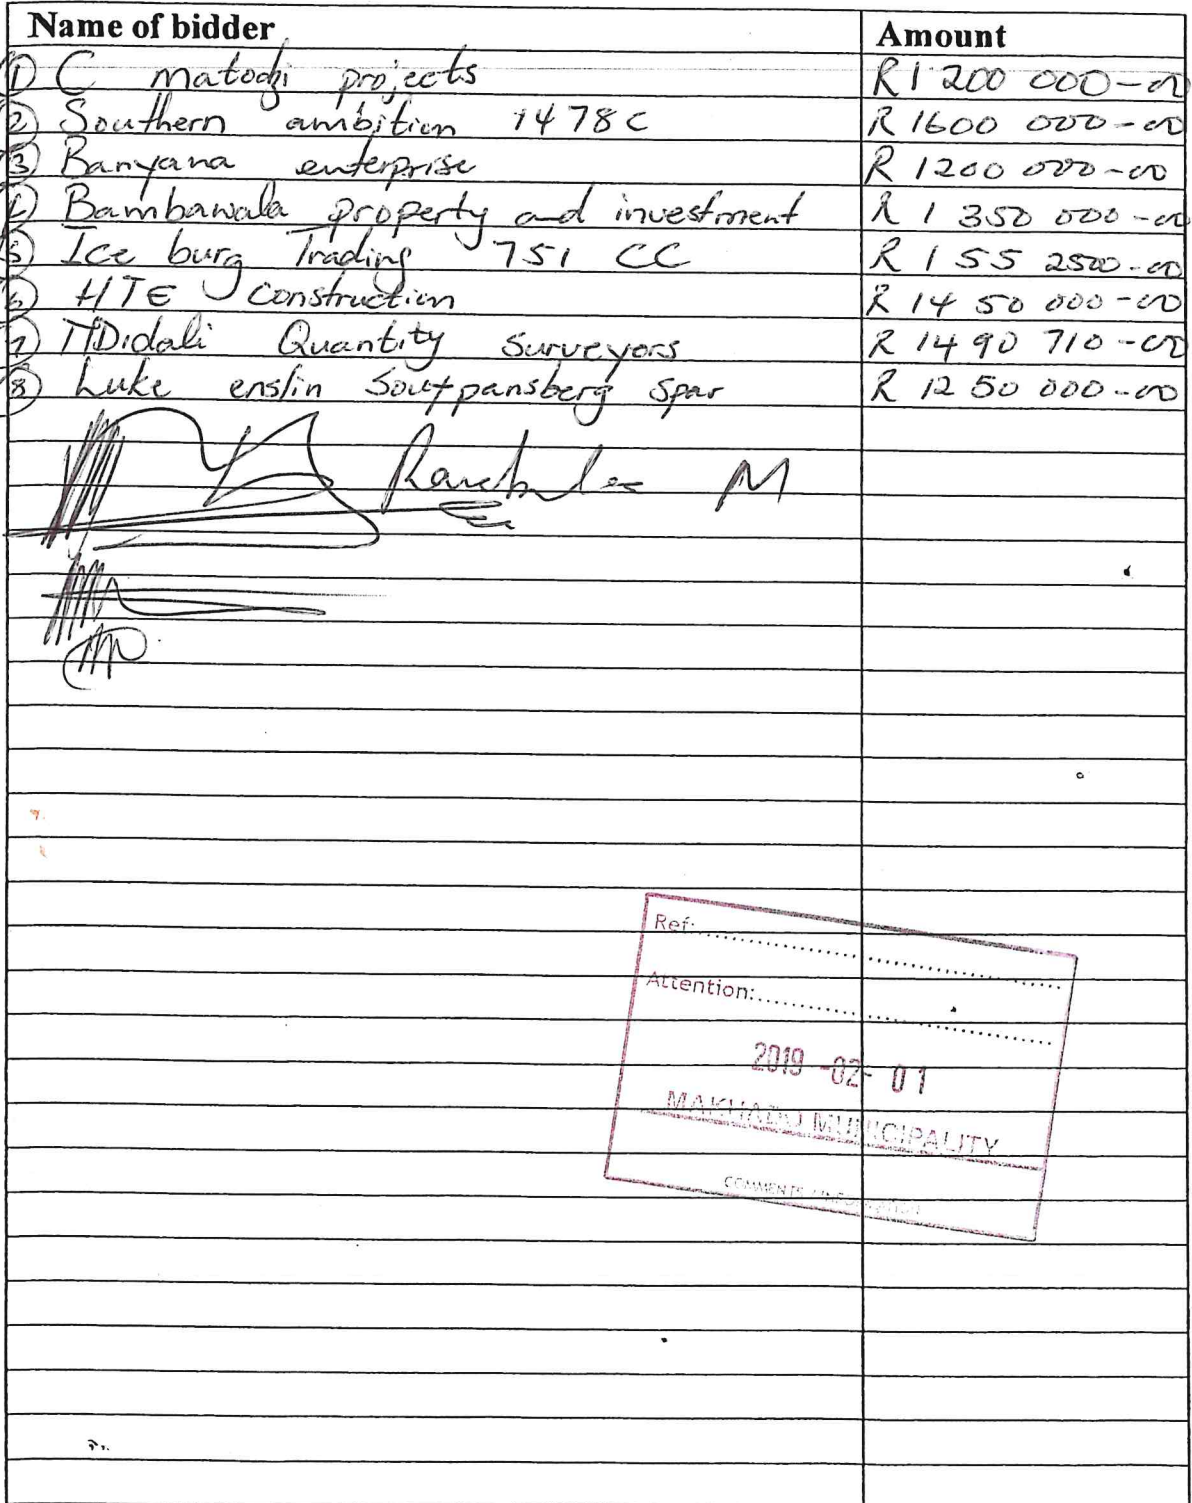 Name of bidder Amount
① C matodzi projects R 1 200 000-00
② Southern ambition 1478C R 1600 000-00
③ Banyana enterprise R 1200 000-00
④ Bambawala property and investment R 1 350 000-00
⑤ Ice burg Trading 751 CC R 155 2500-00
⑥ HTE Construction R 14 50 000-00
⑦ TDidali Quantity Surveyors R 14 90 710-00
⑧ Luke enslin Soutpansberg Spar R 12 50 000-00
M
Ref:
Attention:
2019 -02- 01
MAKHADO MUNICIPALITY
COMMENTS